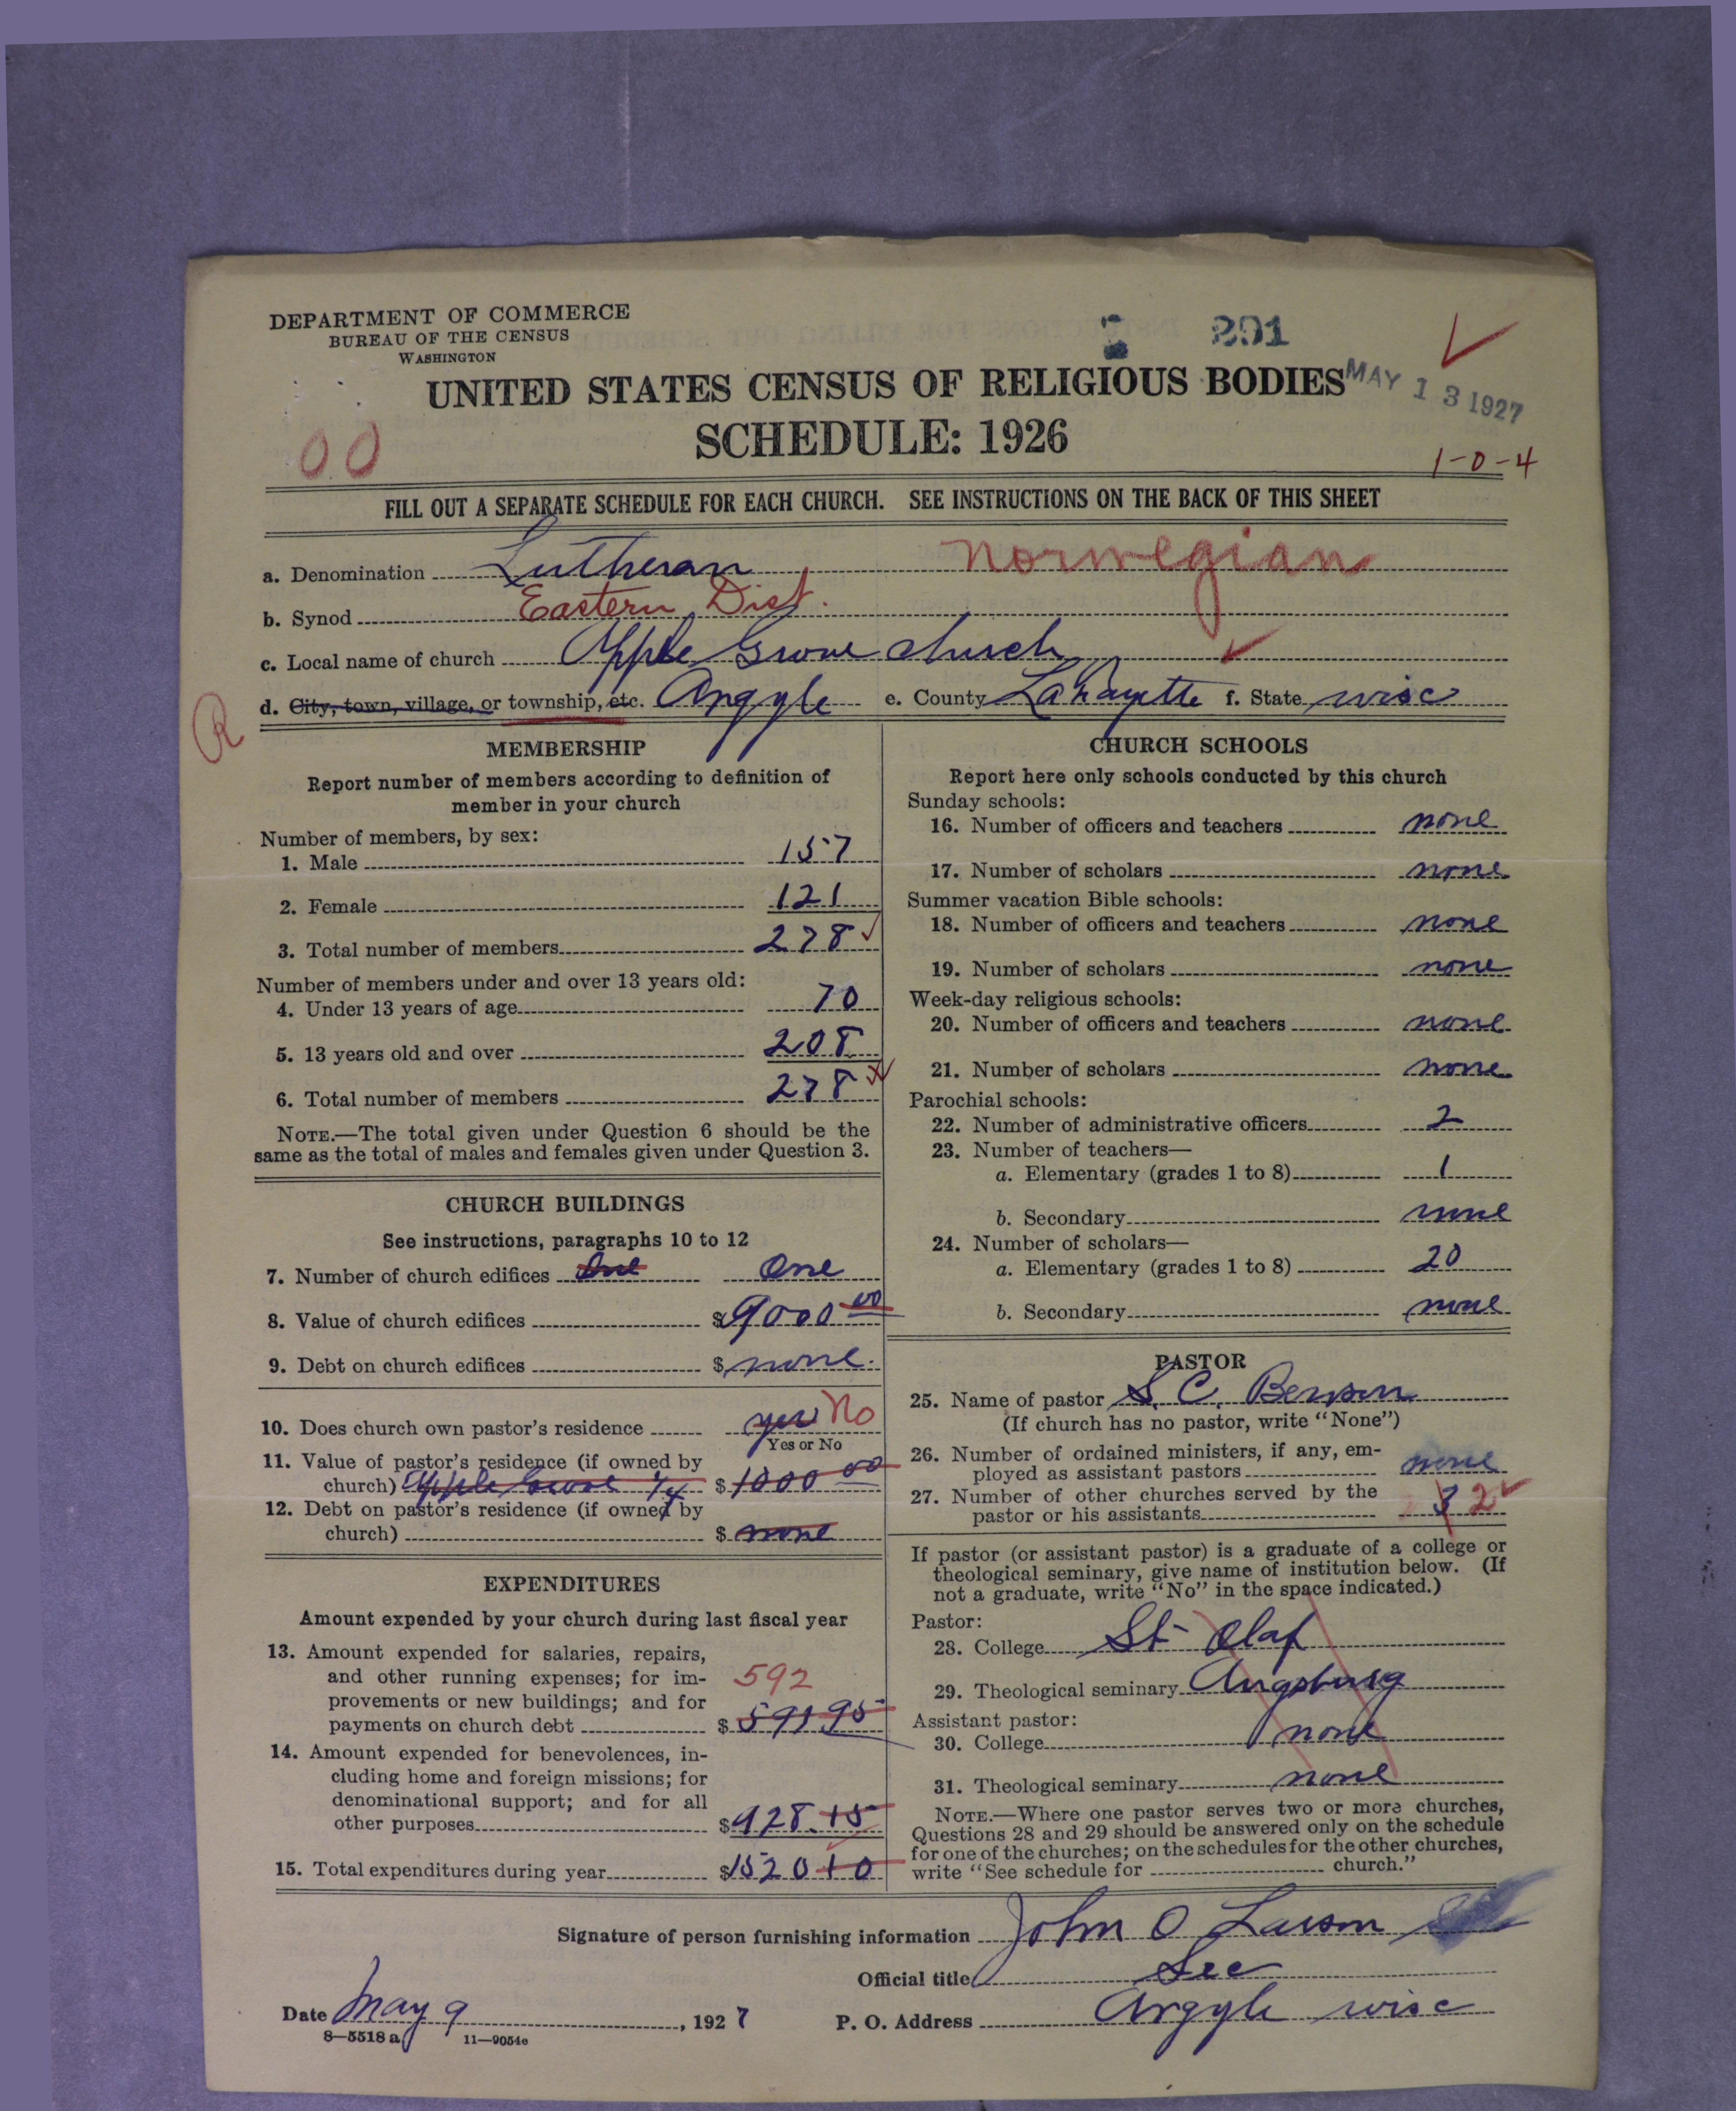 DEPARTMENT OF COMMERCE
BUREAU OF THE CENSUS
WASHINGTON
291
MAY 13 1927
UNITED STATES CENSUS OF RELIGIOUS BODIES
SCHEDULE: 1926
00
1-0-4
FILL OUT A SEPARATE SCHEDULE FOR EACH CHURCH. SEE INSTRUCTIONS ON THE BACK OF THIS SHEET
a. Denomination Lutheran Norwegian
b. Synod Eastern Dist.
c. Local name of church Apple Grove church
d. City, town, village, or township, etc. Argyle e. County LaFayette f. State wisc
R
MEMBERSHIP
Report number of members according to definition of
member in your church
Number of members, by sex:
1. Male 157
2. Female 121
3. Total number of members 278
Number of members under and over 13 years old:
4. Under 13 years of age 70
5. 13 years old and over 208
6. Total number of members 278
NOTE.—The total given under Question 6 should be the
same as the total of males and females given under Question 3.
CHURCH BUILDINGS
See instructions, paragraphs 10 to 12
7. Number of church edifices One One
8. Value of church edifices $9000 00
9. Debt on church edifices $ none.
10. Does church own pastor's residence yes No
Yes or No
11. Value of pastor's residence (if owned by
church) Apple Grove 1/4 $1000 00
12. Debt on pastor's residence (if owned by
church) $ none
EXPENDITURES
Amount expended by your church during last fiscal year
13. Amount expended for salaries, repairs,
and other running expenses; for im-
provements or new buildings; and for
payments on church debt $ 591 95
592
14. Amount expended for benevolences, in-
cluding home and foreign missions; for
denominational support; and for all
other purposes $928.15
15. Total expenditures during year $1520 10
CHURCH SCHOOLS
Report here only schools conducted by this church
Sunday schools:
16. Number of officers and teachers none
17. Number of scholars none
Summer vacation Bible schools:
18. Number of officers and teachers none
19. Number of scholars none
Week-day religious schools:
20. Number of officers and teachers none
21. Number of scholars none
Parochial schools:
22. Number of administrative officers 2
23. Number of teachers—
a. Elementary (grades 1 to 8) 1
b. Secondary none
24. Number of scholars—
a. Elementary (grades 1 to 8) 20
b. Secondary none
PASTOR
25. Name of pastor S. C. Benson
(If church has no pastor, write "None")
26. Number of ordained ministers, if any, em-
ployed as assistant pastors none
27. Number of other churches served by the
pastor or his assistants 3 2
If pastor (or assistant pastor) is a graduate of a college or
theological seminary, give name of institution below. (If
not a graduate, write "No" in the space indicated.)
Pastor:
28. College St Olaf
29. Theological seminary Augsburg
Assistant pastor:
30. College none
31. Theological seminary none
NOTE.—Where one pastor serves two or more churches,
Questions 28 and 29 should be answered only on the schedule
for one of the churches; on the schedules for the other churches,
write "See schedule for church."
Signature of person furnishing information John O Larson
Official title Sec
Date May 9, 1927 P. O. Address Argyle wisc
8—5518 a 11—9054e